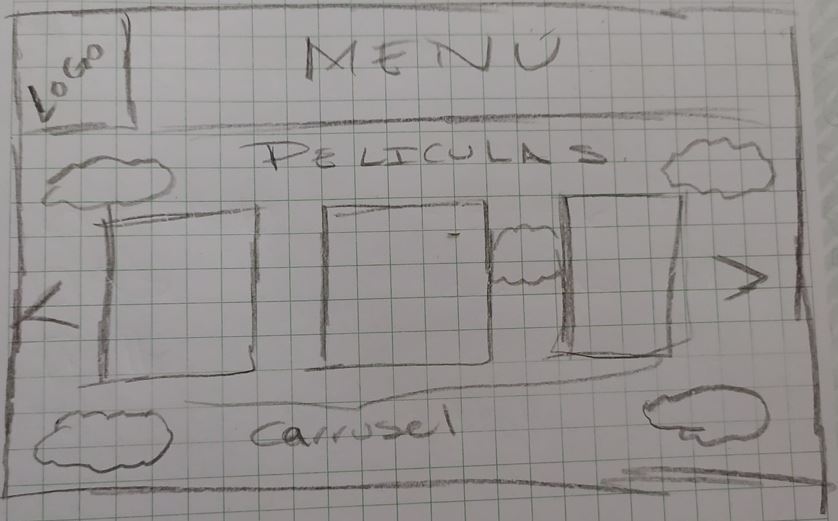 LOGO
MENÚ
PELICULAS
<
>
Carrusel